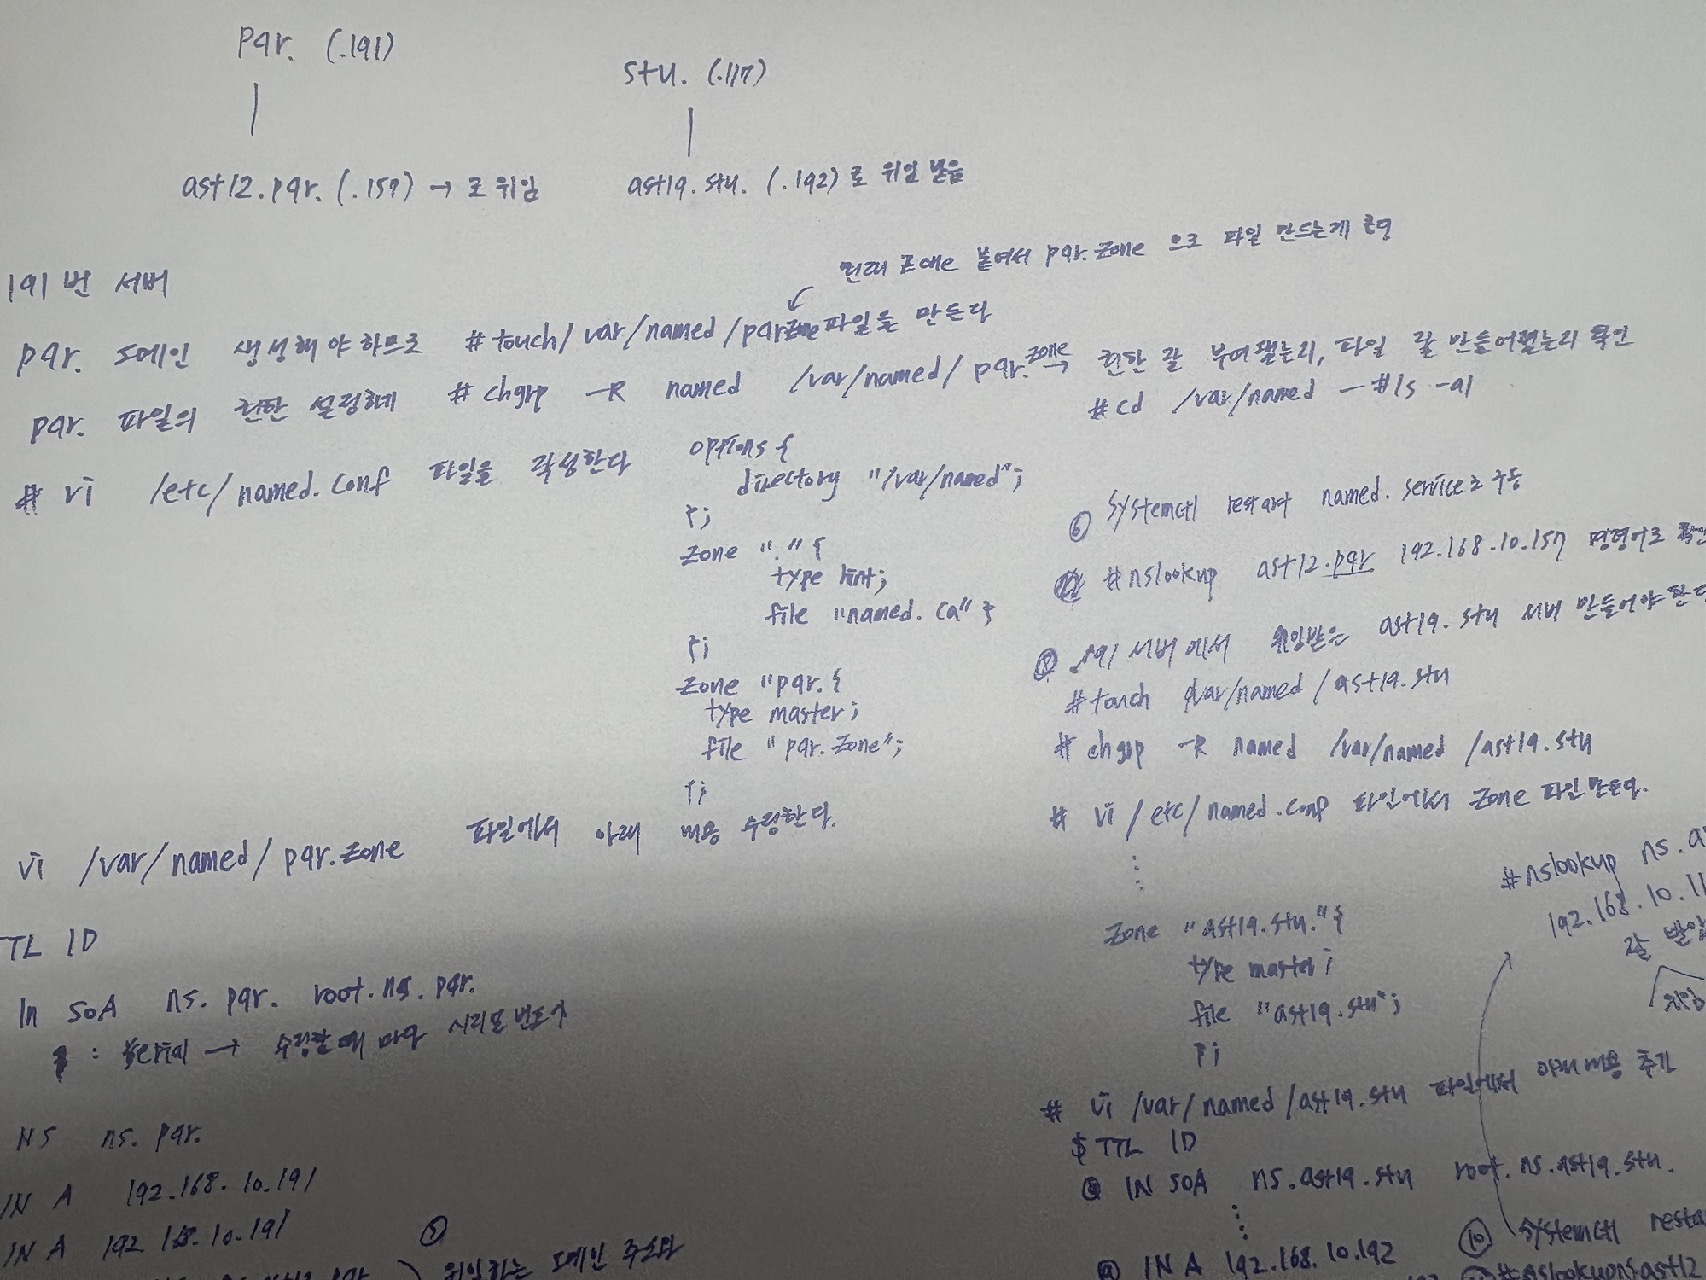 pqr. (.191)
stu. (.117)
ast12.pqr. (.159) → 로 위임
ast19.stu. (.192)로 위임 받음
붙여서 pqr.zone 으로 파일 만드는게
191번 서버
pqr. 도메인 생성해야 하므로 #touch/var/named/pqr.zone 파일을 만든다
pqr. 파일의 권한 설정하네 # chgrp -R named /var/named/pqr.zone
권한 잘 부여됐는지, 파일 잘 만들어졌는지 확인
#cd /var/named - #ls -al
# vi /etc/named.conf 파일을 작성한다
options {
directory "/var/named";
};
zone "." {
type hint;
file "named.ca" ;
};
zone "pqr. {
type master;
file "pqr.zone";
};
vi /var/named/pqr.zone 파일에서 아래 내용 수정한다.
TL 1D
In SOA ns. pqr. root.ns.pqr.
: serial → 수정할 때 마다
NS ns. pqr.
IN A 192.168.10.191
IN A 192.168.10.191
⑤ 위임하는 도메인
⑥ systemctl restart named.service로 구동
#nslookup ast12.pqr 192.168.10.157 명령어로
서버에서 위임받은 ast19.stu 서버 만들어야 한다
#touch /var/named/ast19.stu
# chgrp -R named /var/named/ast19.stu
# vi /etc/named.conf 파일에서 zone 파일 만든다.
zone "ast19.stu." {
type master;
file "ast19.stu";
};
#nslookup ns.a
192.168.10.11
잘
위임
# vi /var/named/ast19.stu 파일에서 아래 내용 추가
$TTL 1D
@ IN SOA ns.ast19.stu root.ns.ast19.stu.
@ IN A 192.168.10.192
⑩ systemctl resta